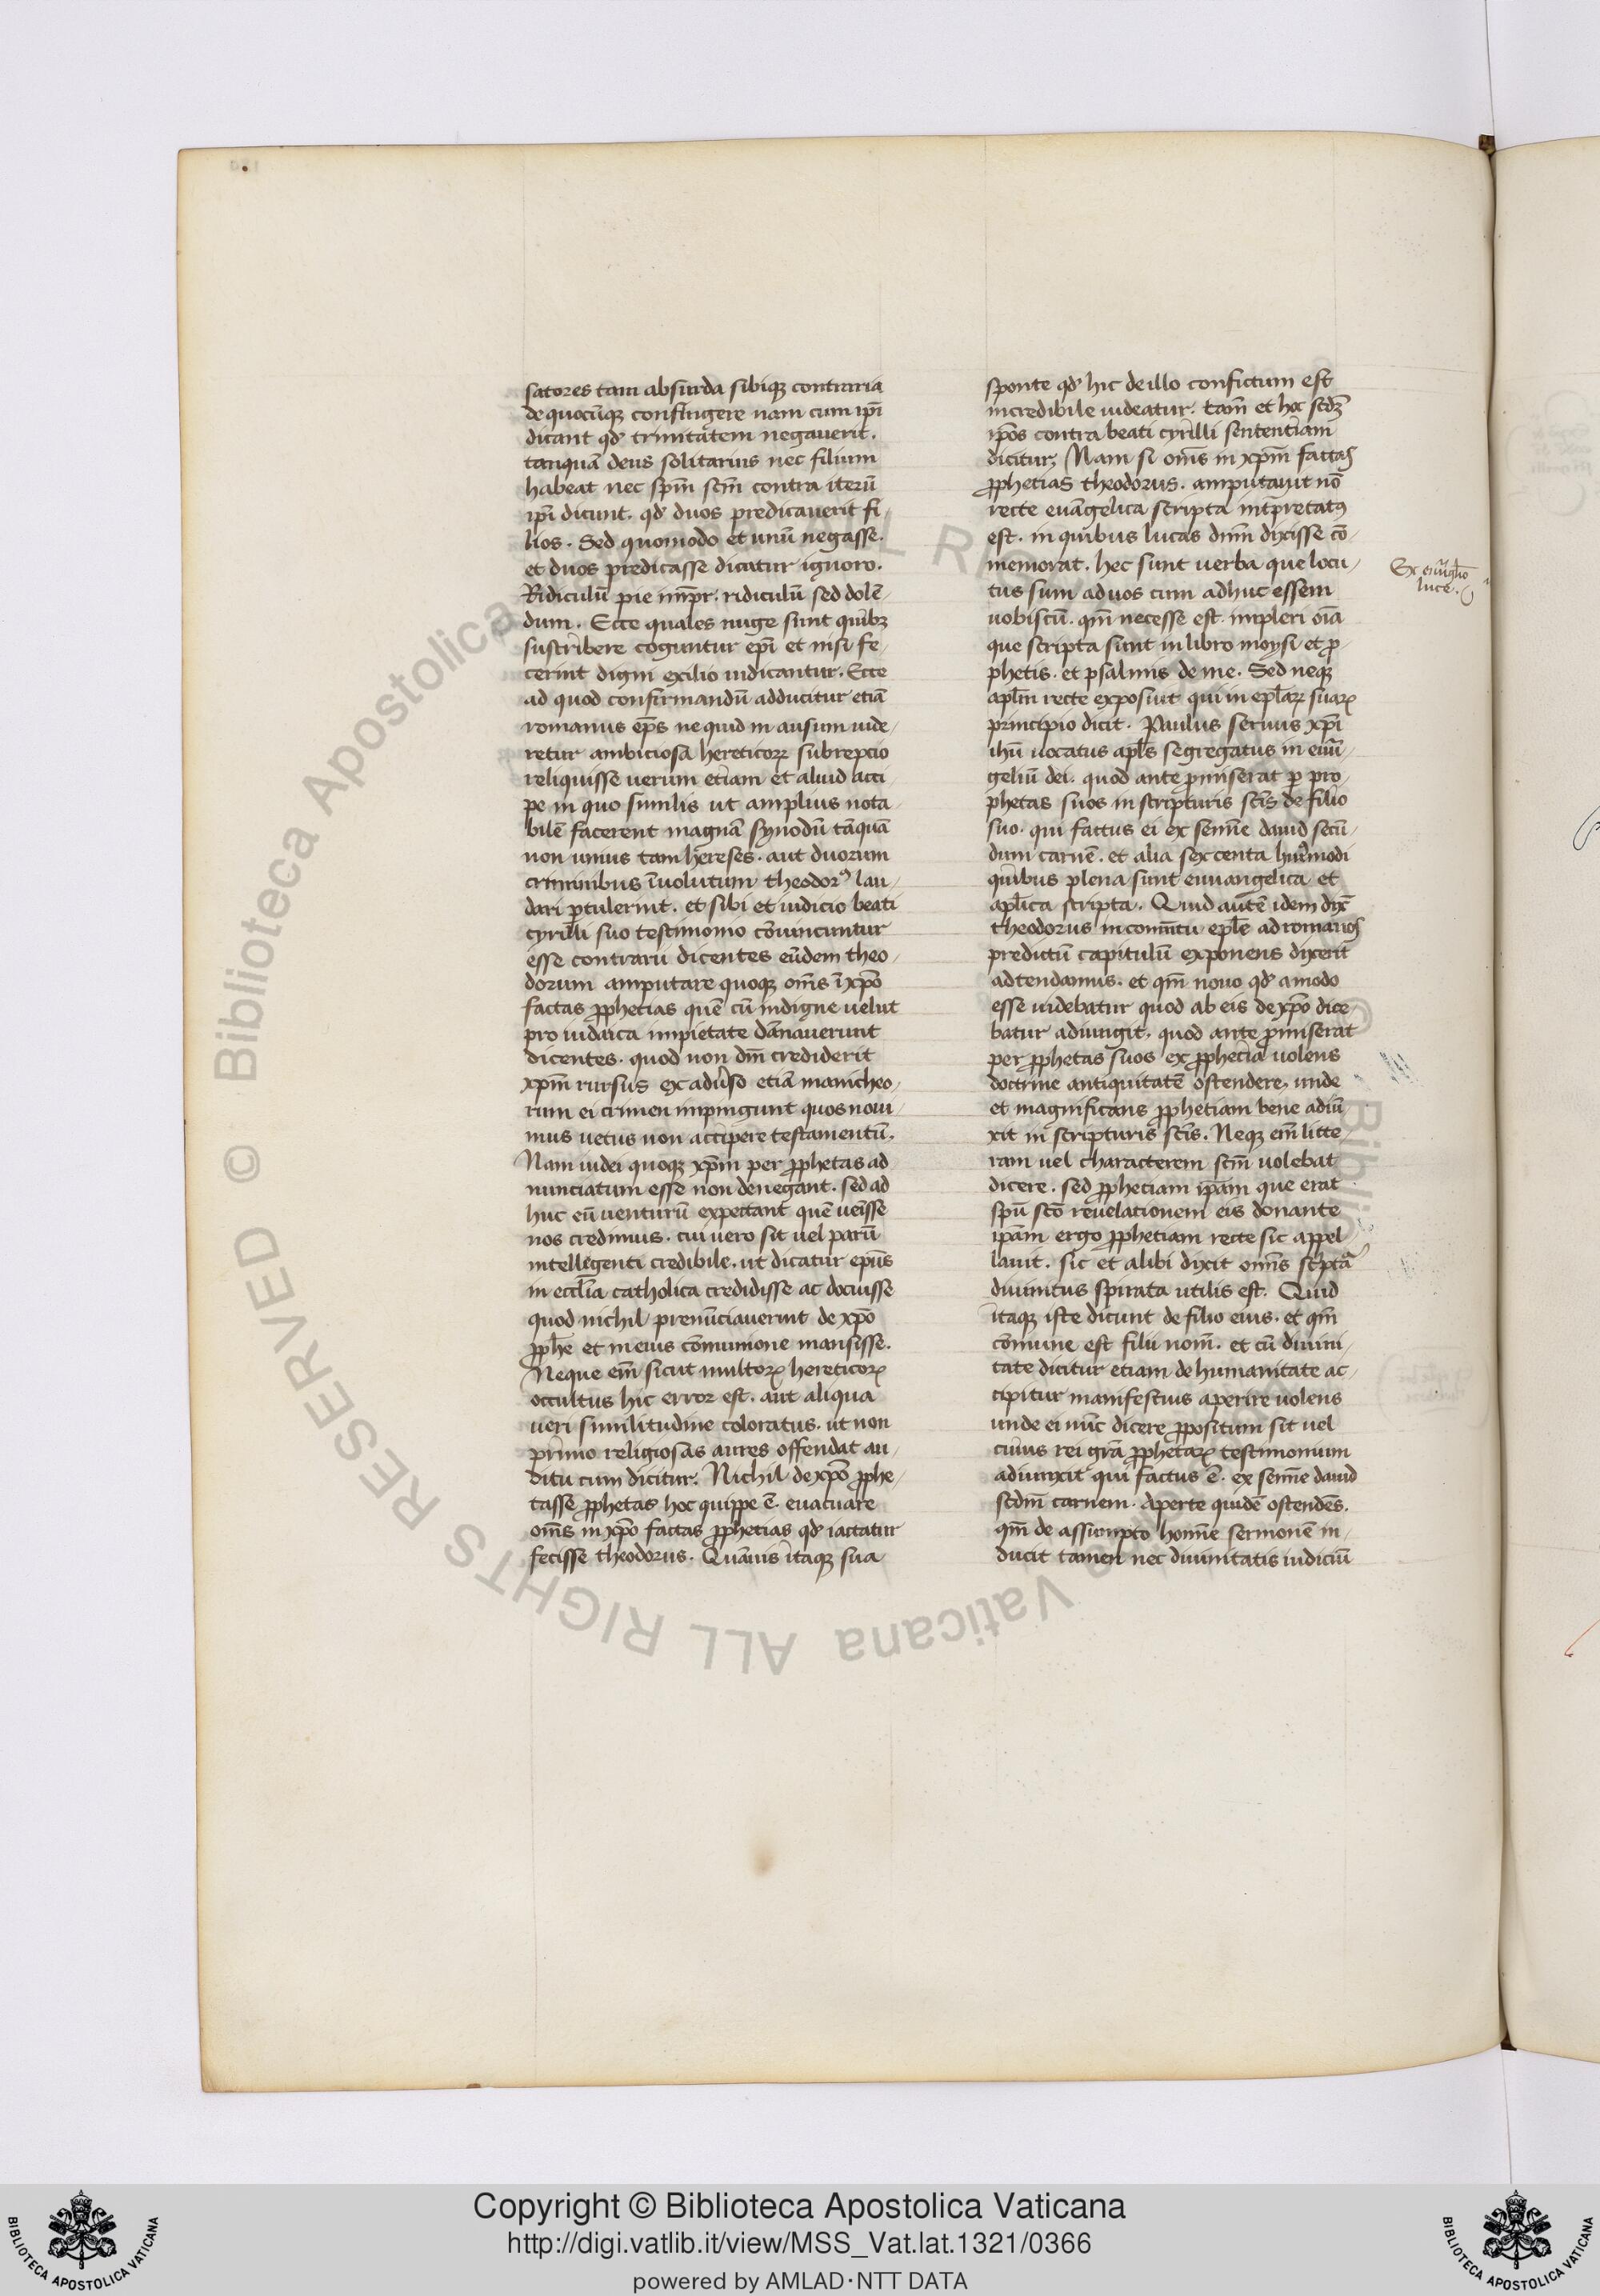 satores tam absurda sibiqꝫ contraria
de quocūqꝫ confingere nam cum ip̄i
dicant qd' trinitatem negauerit.
tanquā deus solitarius nec filium
habeat nec sp̄m sc̄m contra iterū
ip̄i dicunt. qd' duos predicauerit fi-
lios. Sed quomodo et unū negasse.
et duos predicasse dicatur ignoro.
Ridiculū pie imp̄r. ridiculū sed dolē-
dum. Ecce quales nuge sunt quibꝫ
suscribere coguntur ep̄i et nisi fe-
cerint digni exilio iudicantur. Ecce
ad quod confirmandū adducitur etiā
romanus ep̄s ne quid in ausum uide-
retur ambiciosa hereticoꝝ subrepcio
reliquisse uerum etiam et aliud acci-
pe in quo similis ut amplius nota-
bilē facerent magnā synodū tāquā
non unius tam hereses. aut duorum
criminibus īuolutum theodorꝰ lau-
dari ꝑtulerint. et sibi et iudicio beati
cyrilli suo testimonio cōuincuntur
esse contrarii dicentes eūdem theo-
dorum amputare quoqꝫ om̄s ī xp̄o
factas ꝓphetias quē cū indigne uelut
pro iudaica impietate dānauerunt
dicentes. quod non dm̄ crediderit
xp̄m rursus ex adu̓so etiā manicheo-
rum ei crimen impingunt quos noui-
mus uetus non accipere testamentū.
Nam iudei quoqꝫ xp̄m per ꝓphetas ad
nunciatum esse non denegant. sed ad
huc eū uenturū expectant quē uenisse
nos credimus. cui uero sit uel parū
intellegenti credibile. ut dicatur ep̄us
in eccl̄ia catholica credidisse ac docuisse
quod nichil prenūciauerint de xp̄o
ꝓphē et in eius cōmunione mansisse.
Neque em̄ sicut multoꝝ hereticoꝝ
occultus hic error est. aut aliqua
ueri similitudine coloratus. ut non
primo religiosas aures offendat au-
ditu cum dicitur. Nichil de xp̄o ꝓphe-
tasse ꝓphetas hoc quippe ē. euacuare
om̄s in xp̄o factas ꝓphetias qd' iactatur
fecisse theodorus. Quāuis itaqꝫ sua
sponte qd' hic de illo confictum est
incredibile uideatur. tam̄ et hoc scdꝫ
ip̄os contra beati cyrilli sententiam
dicitur. Nam si om̄s in xp̄m factas
ꝓphetias theodorus. amputauit nō
recte euāgelica scripta int̓pretatꝰ
est. in quibus lucas dn̄m dixisse cō-
memorat. hec sunt uerba que locu-
tus sum ad uos cum adhuc essem
uobiscū. qm̄ necesse est. impleri oīa
que scripta sunt in libro moysi et ꝓ-
phetis. et psalmis de me. Sed neqꝫ
apl̄m recte exposiut qui in epl̄aꝝ suaꝝ
principio dicit. Paulus seruus xp̄i
ih̄u uocatus apl̄s segregatus in euā-
geliū dei. quod ante ꝓmiserat ꝑ pro-
phetas suos in scripturis sc̄is de filio
suo. qui factus ei ex semīe dauid secū-
dum carnē. et alia sexcenta huiꝰmodi
quibus plena sunt euuangelica et
apl̄ica scripta. Quid autē idem dix̄
theodorus in comm̄tu epl̄e ad romanos
predictū capitulū exponens dixerit
adtendamus. et qm̄ nouo qd' amodo
esse uidebatur quod ab eis de xp̄o dice-
batur adiungit. quod ante ꝓmiserat
per ꝓphetas suos ex ꝓphecia uolens
doctrine antiquitatē ostendere. unde
et magnificans ꝓphetiam bene adiū-
xit in scripturis sc̄is. Neqꝫ em̄ litte-
ram uel characterem sc̄m uolebat
dicere. sed ꝓpheciam ip̄am que erat
sp̄u sc̄o reuelationem eis donante
ip̄am ergo ꝓphetiam recte sic appel-
lauit. sic et alibi dixit omīs scptᵃ
diuinitus spirata utilis est. Quid
itaqꝫ iste dicunt de filio eius. et qm̄
cōmune est filii nom̄. et cū diuini-
tate dicitur etiam de humanitate ac-
cipitur manifestius aperire uolens
unde ei nūc dicere ꝓpositum sit uel
cuius rei grā ꝓphetaꝝ testimonium
adiunxit qui factus ē. ex semīe dauid
scdm̄ carnem. Aperte quidē ostendēs.
qm̄ de assumpto homīe sermonē in-
ducit tamen nec diuinitatis iudiciū
Ex euāgl̄io
luce.
Copyright © Biblioteca Apostolica Vaticana
http://digi.vatlib.it/view/MSS_Vat.lat.1321/0366
powered by AMLAD·NTT DATA
BIBLIOTECA APOSTOLICA VATICANA
BIBLIOTECA APOSTOLICA VATICANA
© Biblioteca Apostolica Vaticana ALL RIGHTS RESERVED